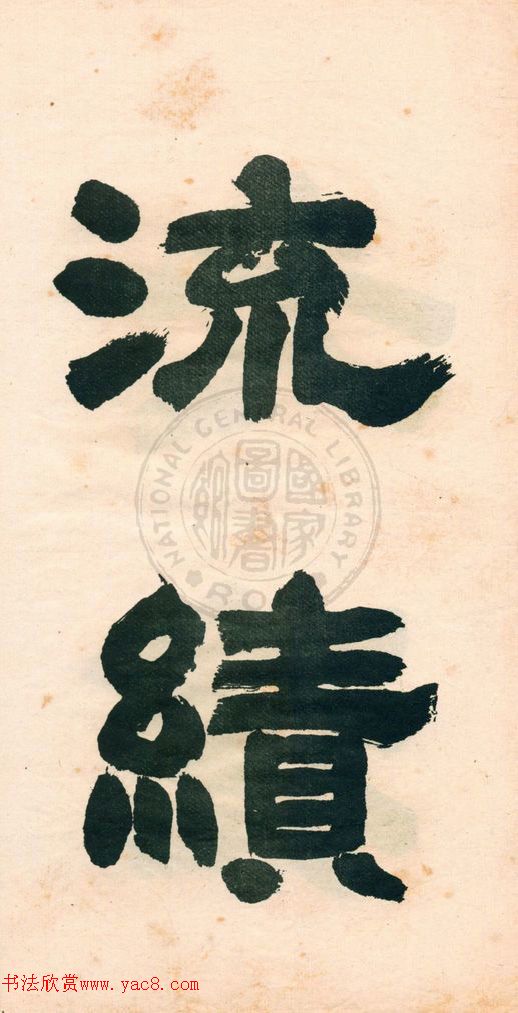 流
績
NATIONAL CENTRAL LIBRARY
R.O.C.
國家圖書館
书法欣赏www.yac8.com